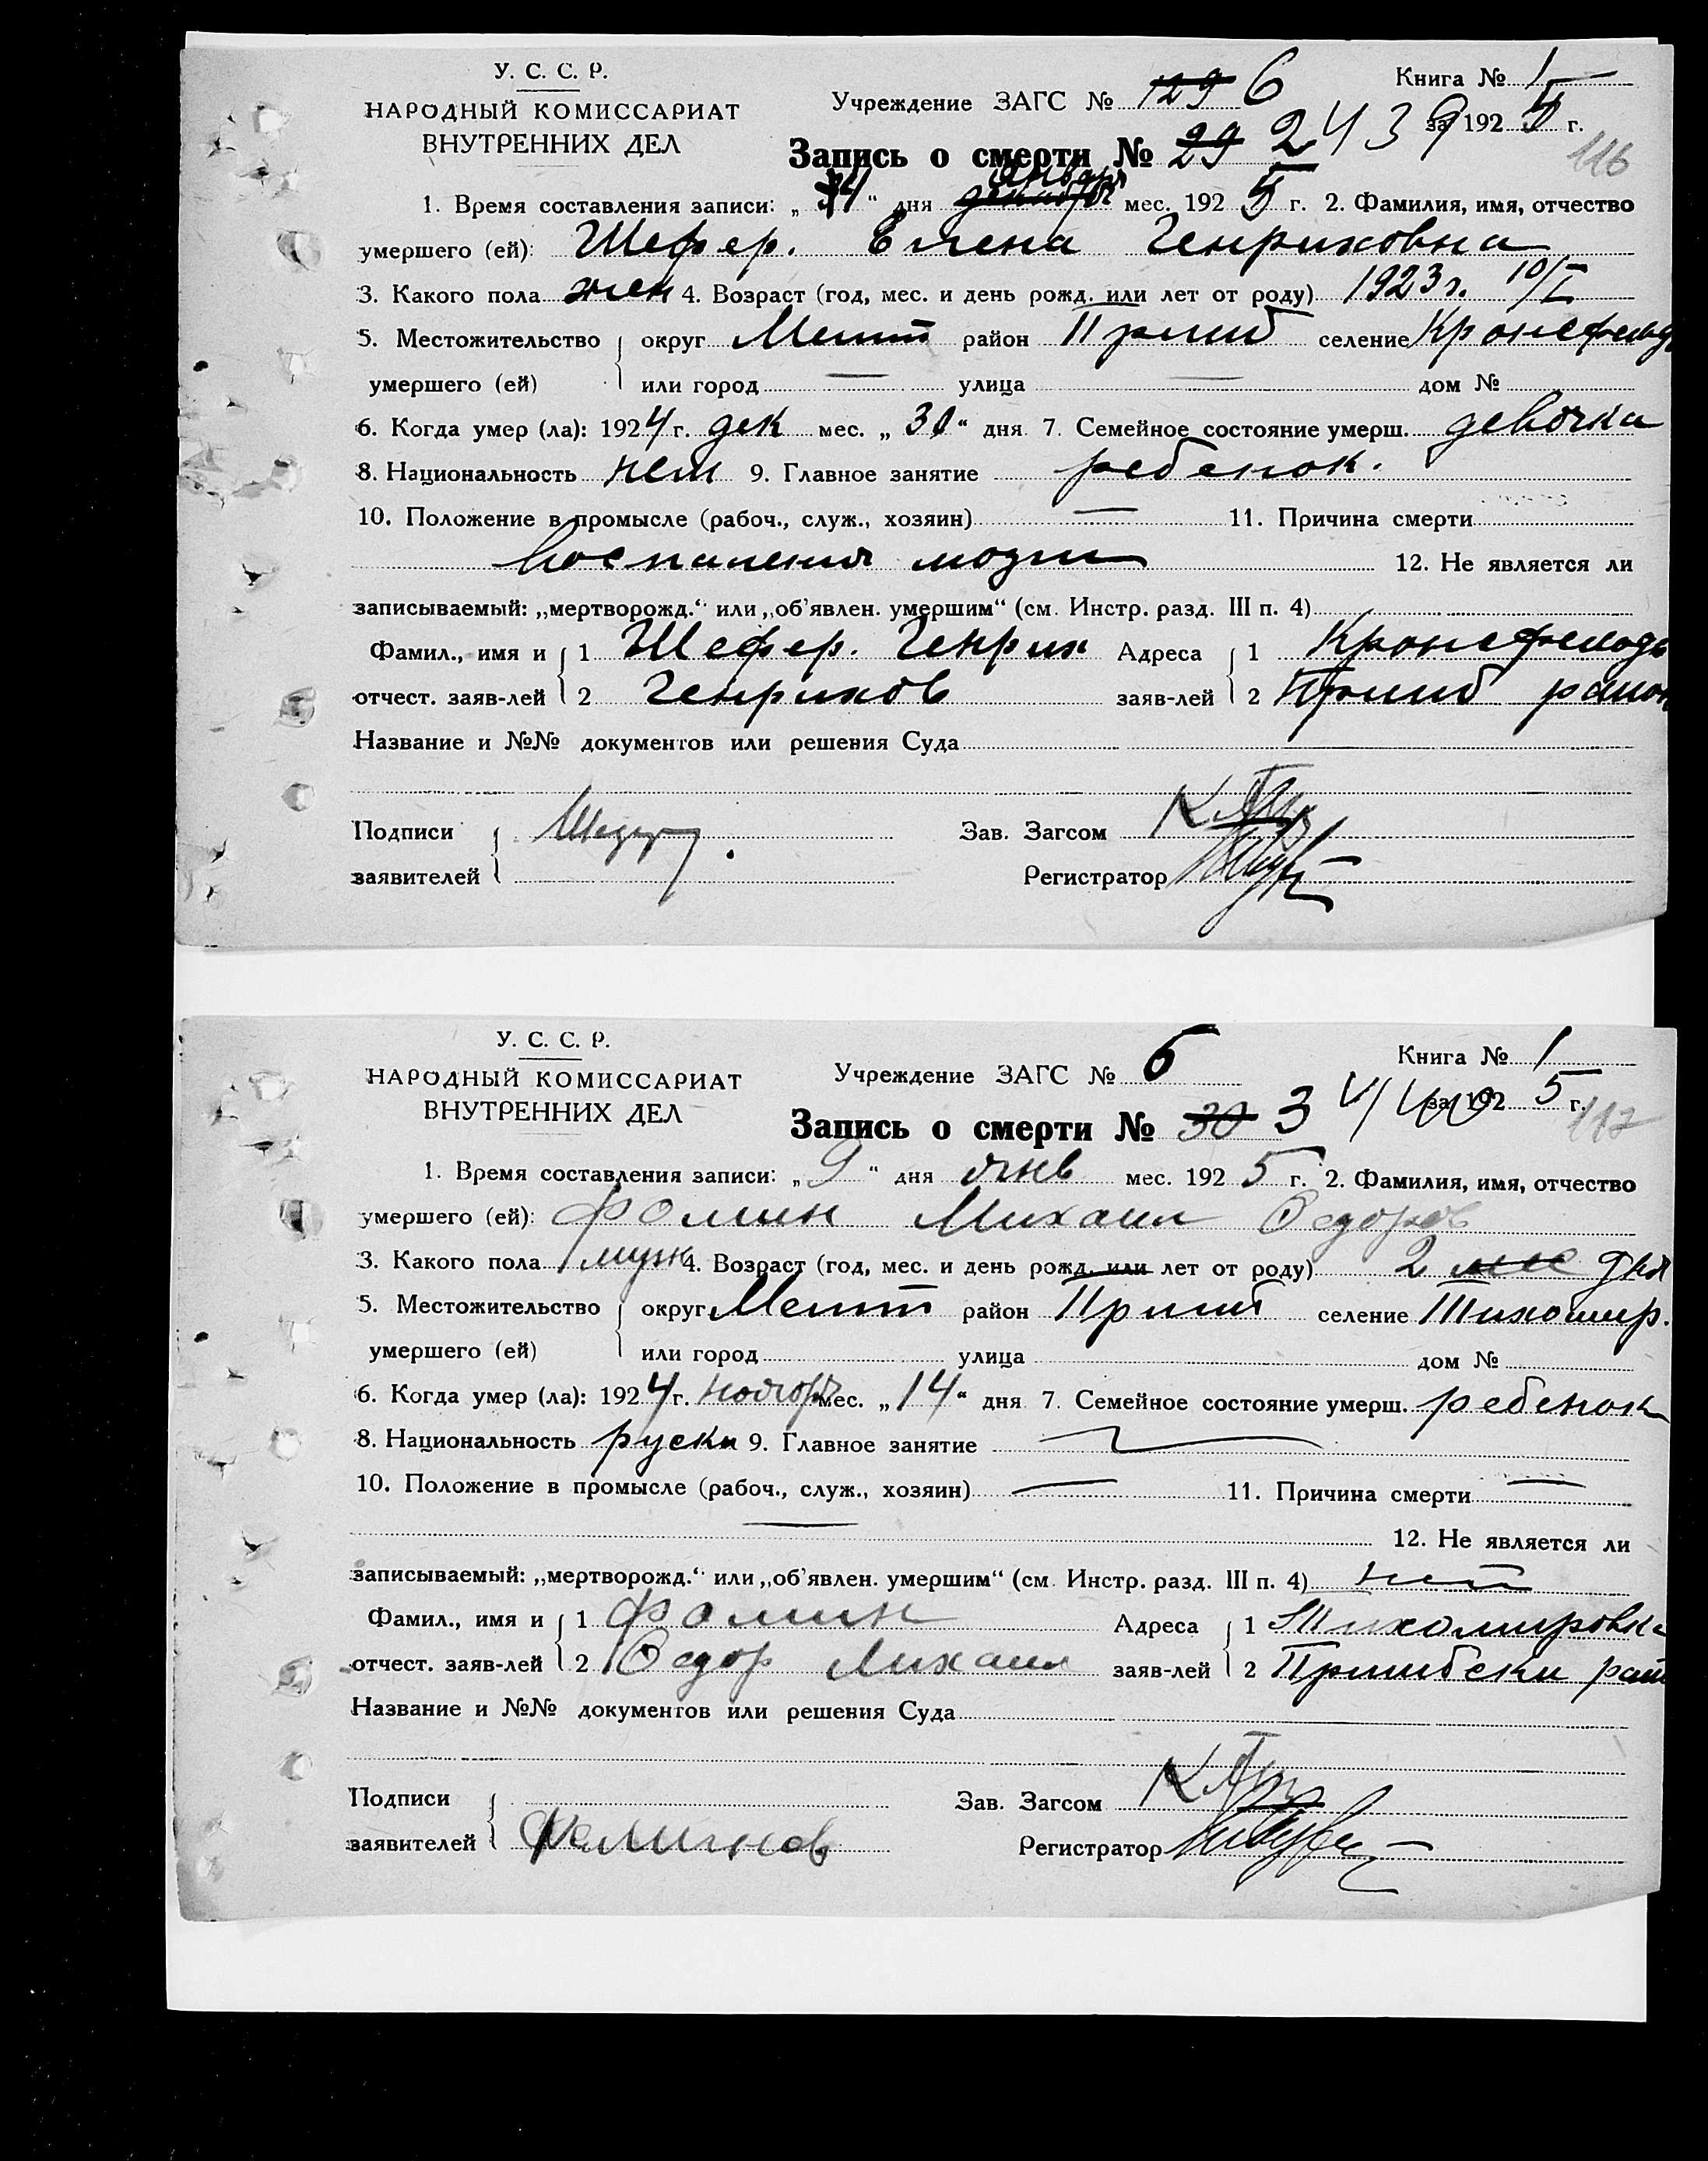 У. С. С. Р.
НАРОДНЫЙ КОМИССАРИАТ
ВНУТРЕННИХ ДЕЛ
Учреждение ЗАГС № 129 6
Книга № 1
за 1925 г.
Запись о смерти № 29 2 439
116
1. Время составления записи: „ “ дня декабря января мес. 1925 г. 2. Фамилия, имя, отчество
умершего (ей): Шефер. Елена Генриховна
3. Какого пола жен 4. Возраст (год, мес. и день рожд. или лет от роду) 1923 г. 10/I
5. Местожительство округ Мелит район Пришиб селение Кронсфельд
умершего (ей) или город — улица — дом №
6. Когда умер (ла): 1924 г. дек мес. „ “ дня 7. Семейное состояние умерш. девочка
8. Национальность нем 9. Главное занятие ребенок.
10. Положение в промысле (рабоч., служ., хозяин) — 11. Причина смерти
Воспаления мозги
12. Не является ли
записываемый: „мертворожд.“ или „об’явлен. умершим“ (см. Инстр. разд. III п. 4)
Фамил., имя и 1 Шефер. Генрих Адреса 1 Кронсфельдь
отчест. заяв-лей 2 Генрихов заяв-лей 2 Пришиб район
Название и №№ документов или решения Суда
Подписи Зав. Загсом
заявителей Регистратор
У. С. С. Р.
НАРОДНЫЙ КОМИССАРИАТ
ВНУТРЕННИХ ДЕЛ
Учреждение ЗАГС № 6
Книга № 1
за 1925 г.
Запись о смерти № 30 3 440
117
1. Время составления записи: „9“ дня янв мес. 1925 г. 2. Фамилия, имя, отчество
умершего (ей): Фомин Михаил Федоров
3. Какого пола муж 4. Возраст (год, мес. и день рожд. или лет от роду) 2 мес дня
5. Местожительство округ Мелит район Пришиб селение Тихомир.
умершего (ей) или город улица дом №
6. Когда умер (ла): 1924 г. ноября мес. „14“ дня 7. Семейное состояние умерш. ребенок
8. Национальность руски 9. Главное занятие —
10. Положение в промысле (рабоч., служ., хозяин) — 11. Причина смерти —
—
12. Не является ли
записываемый: „мертворожд.“ или „об’явлен. умершим“ (см. Инстр. разд. III п. 4) нет
Фамил., имя и 1 Фомин Адреса 1 Тихомировка
отчест. заяв-лей 2 Федор Михаил заяв-лей 2 Пришибски рай
Название и №№ документов или решения Суда
Подписи Зав. Загсом
заявителей Регистратор